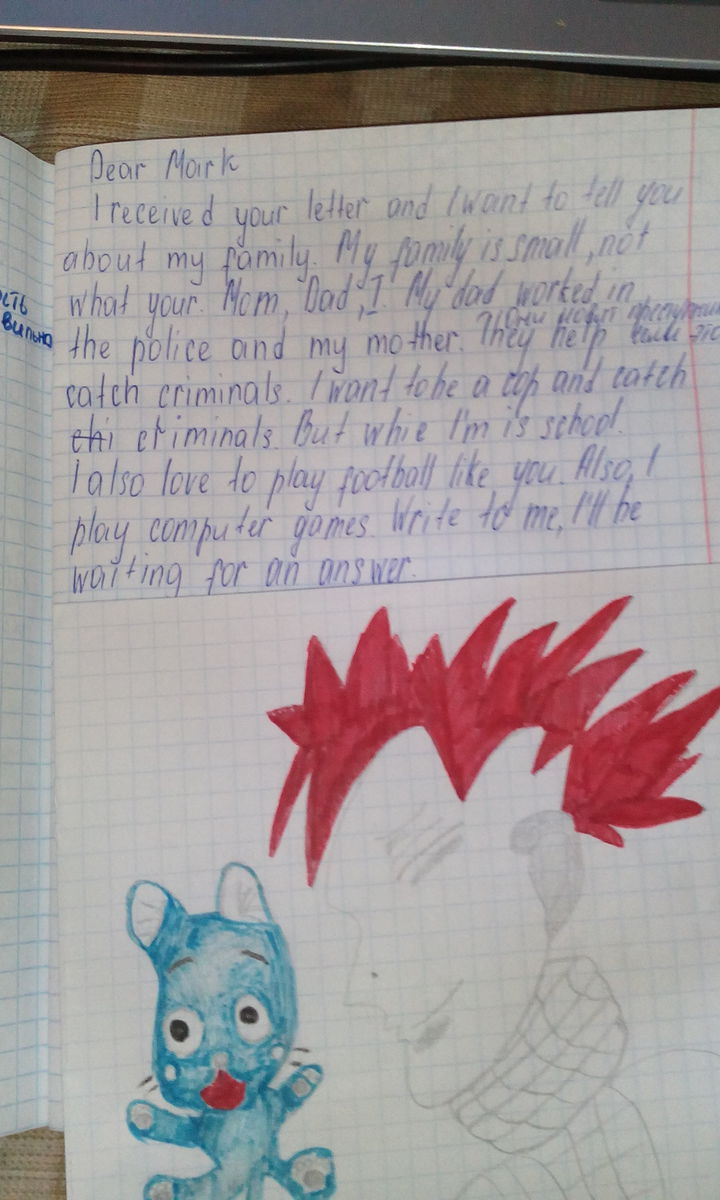 Dear Mark
I received your letter and I want to tell you
about my family. My family is small, not
what your. Mom, Dad, I. My dad worked in
the police and my mother. They help
catch criminals. I want to be a cop and catch
chi criminals. But whie I'm is school.
I also love to play football like you. Also, I
play computer games. Write to me, I'll be
waiting for an answer.